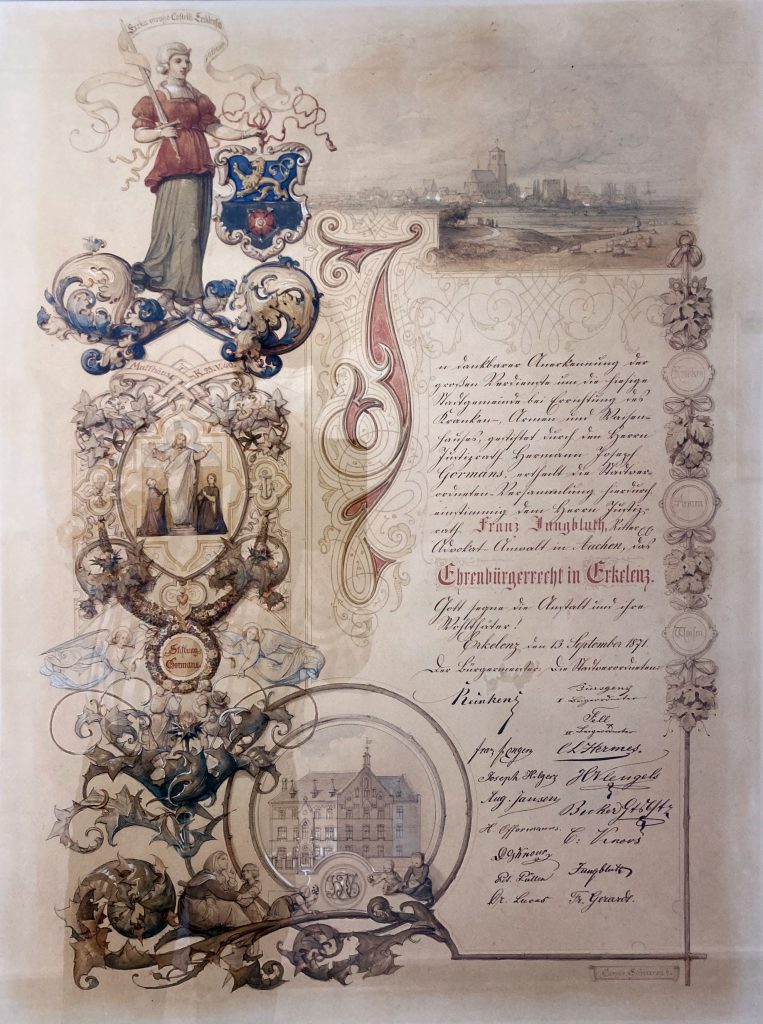 Matthäus K. 25. V. 40.
Stiftung
Gormans
In dankbarer Anerkennung der
großen Verdienste um die hiesige
Stadtgemeinde bei Errichtung des
Kranken-, Armen und Waisen-
hauses, gestiftet durch den Herrn
Justizrath Hermann Joseph
Gormans, ertheilt die Stadtver-
ordneten-Versammlung hierdurch
einstimmig dem Herrn Justiz-
rath Franz Jungbluth, Ritter
Advokat-Anwalt in Aachen, das
Ehrenbürgerrecht in Erkelenz.
Gott segne die Anstalt und ihre
Wohlthäter!
Erkelenz, den 13. September 1871.
Der Bürgermeister: Die Stadtverordneten:
Reinkens
I Beigeordneter
II Beigeordneter
C. L. Hermes.
Joseph Hilgers
Aug. Jansen
Becker
H. Offermanns
Jungbluth
Dr. Lucas
Fr. Gerards.
Kranken
Armen
Waisen